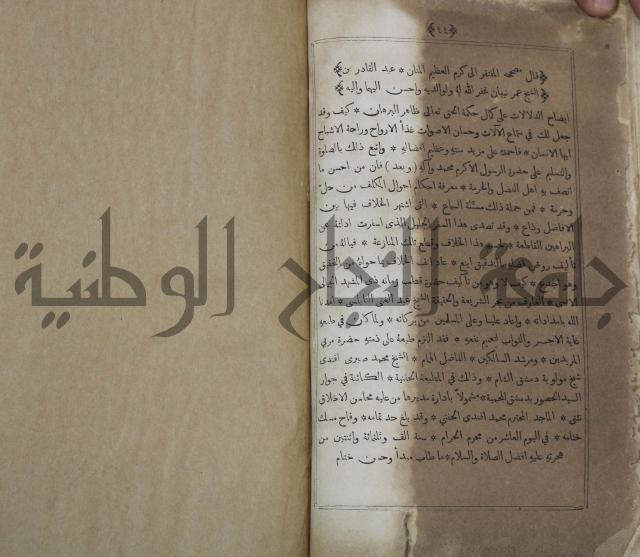 ﴿٤٤﴾
﴿قال مصححه المفتقر الى كرم العظيم المنان * عبد القادر بن﴾
﴿الشيخ عمر نبهان غفر الله له ولوالديه واحسن اليهما واليه﴾
ايضاح الدلالات على كمال حكمة الحق تعالى ظاهر البرهان * كيف وقد
جعل لك في سماع الآلات وحسان الاصوات غذأ الارواح وراحة الاشباح
ايها الانسان * فاحمده على مزيد مننه وعظيم افضاله * واتبع ذلك بالصلوة
والتسليم على حضرة الرسول الاكرم محمد وآله (وبعد) فان من احسن ما
اتصف به اهل الفضل والحرمة * معرفة احكام احوال المكلف من حل
وحرمة * فمن جملة ذلك مسئلة السماع * التي اشتهر الخلاف فيها بين
الافاضل وذاع * وقد تصدى هذا السفر الجليل الذي اسفرت ادلته عن
البراهين القاطعة * هذا الخلاف وقطع تلك المنازعة * فياله من
تأليف بالتدقيق اينع * الخلاف بما حواه من التحقيق
وهو من تأليف حضرة قطب زمانه ذي المشهد
العارف من بحر الشريعة والحقيقة الشيخ عبد الغني النابلسي * امدنا
الله بامداداته * واعاد علينا وعلى المسلمين من بركاته * ولما كان في طبعه
غاية الاجر والثواب لتعميم نفعه * فقد التزم طبعه على ذمته حضرة مربي
المريدين * ومرشد السالكين * الفاضل الهمام * الشيخ محمد صبري افندى
شيخ مولوية دمشق الشام * وذلك في المطبعة الحفنية * الكائنة في جوار
السيد الحصور بدمشق المحمية * مشمولاً بادارة مديرها من عليه محاسن الاخلاق
تثنى * الماجد المحترم محمد افندى الحفني * وقد بلغ حد تمامه * وفاح مسك
ختامه * في اليوم العاشر من محرم الحرام * سنة الف وثلثمائة واثنتين من
هجرته عليه افضل الصلاة والسلام * ما طاب مبدأ وحسن ختام
جامعة النجاح الوطنية